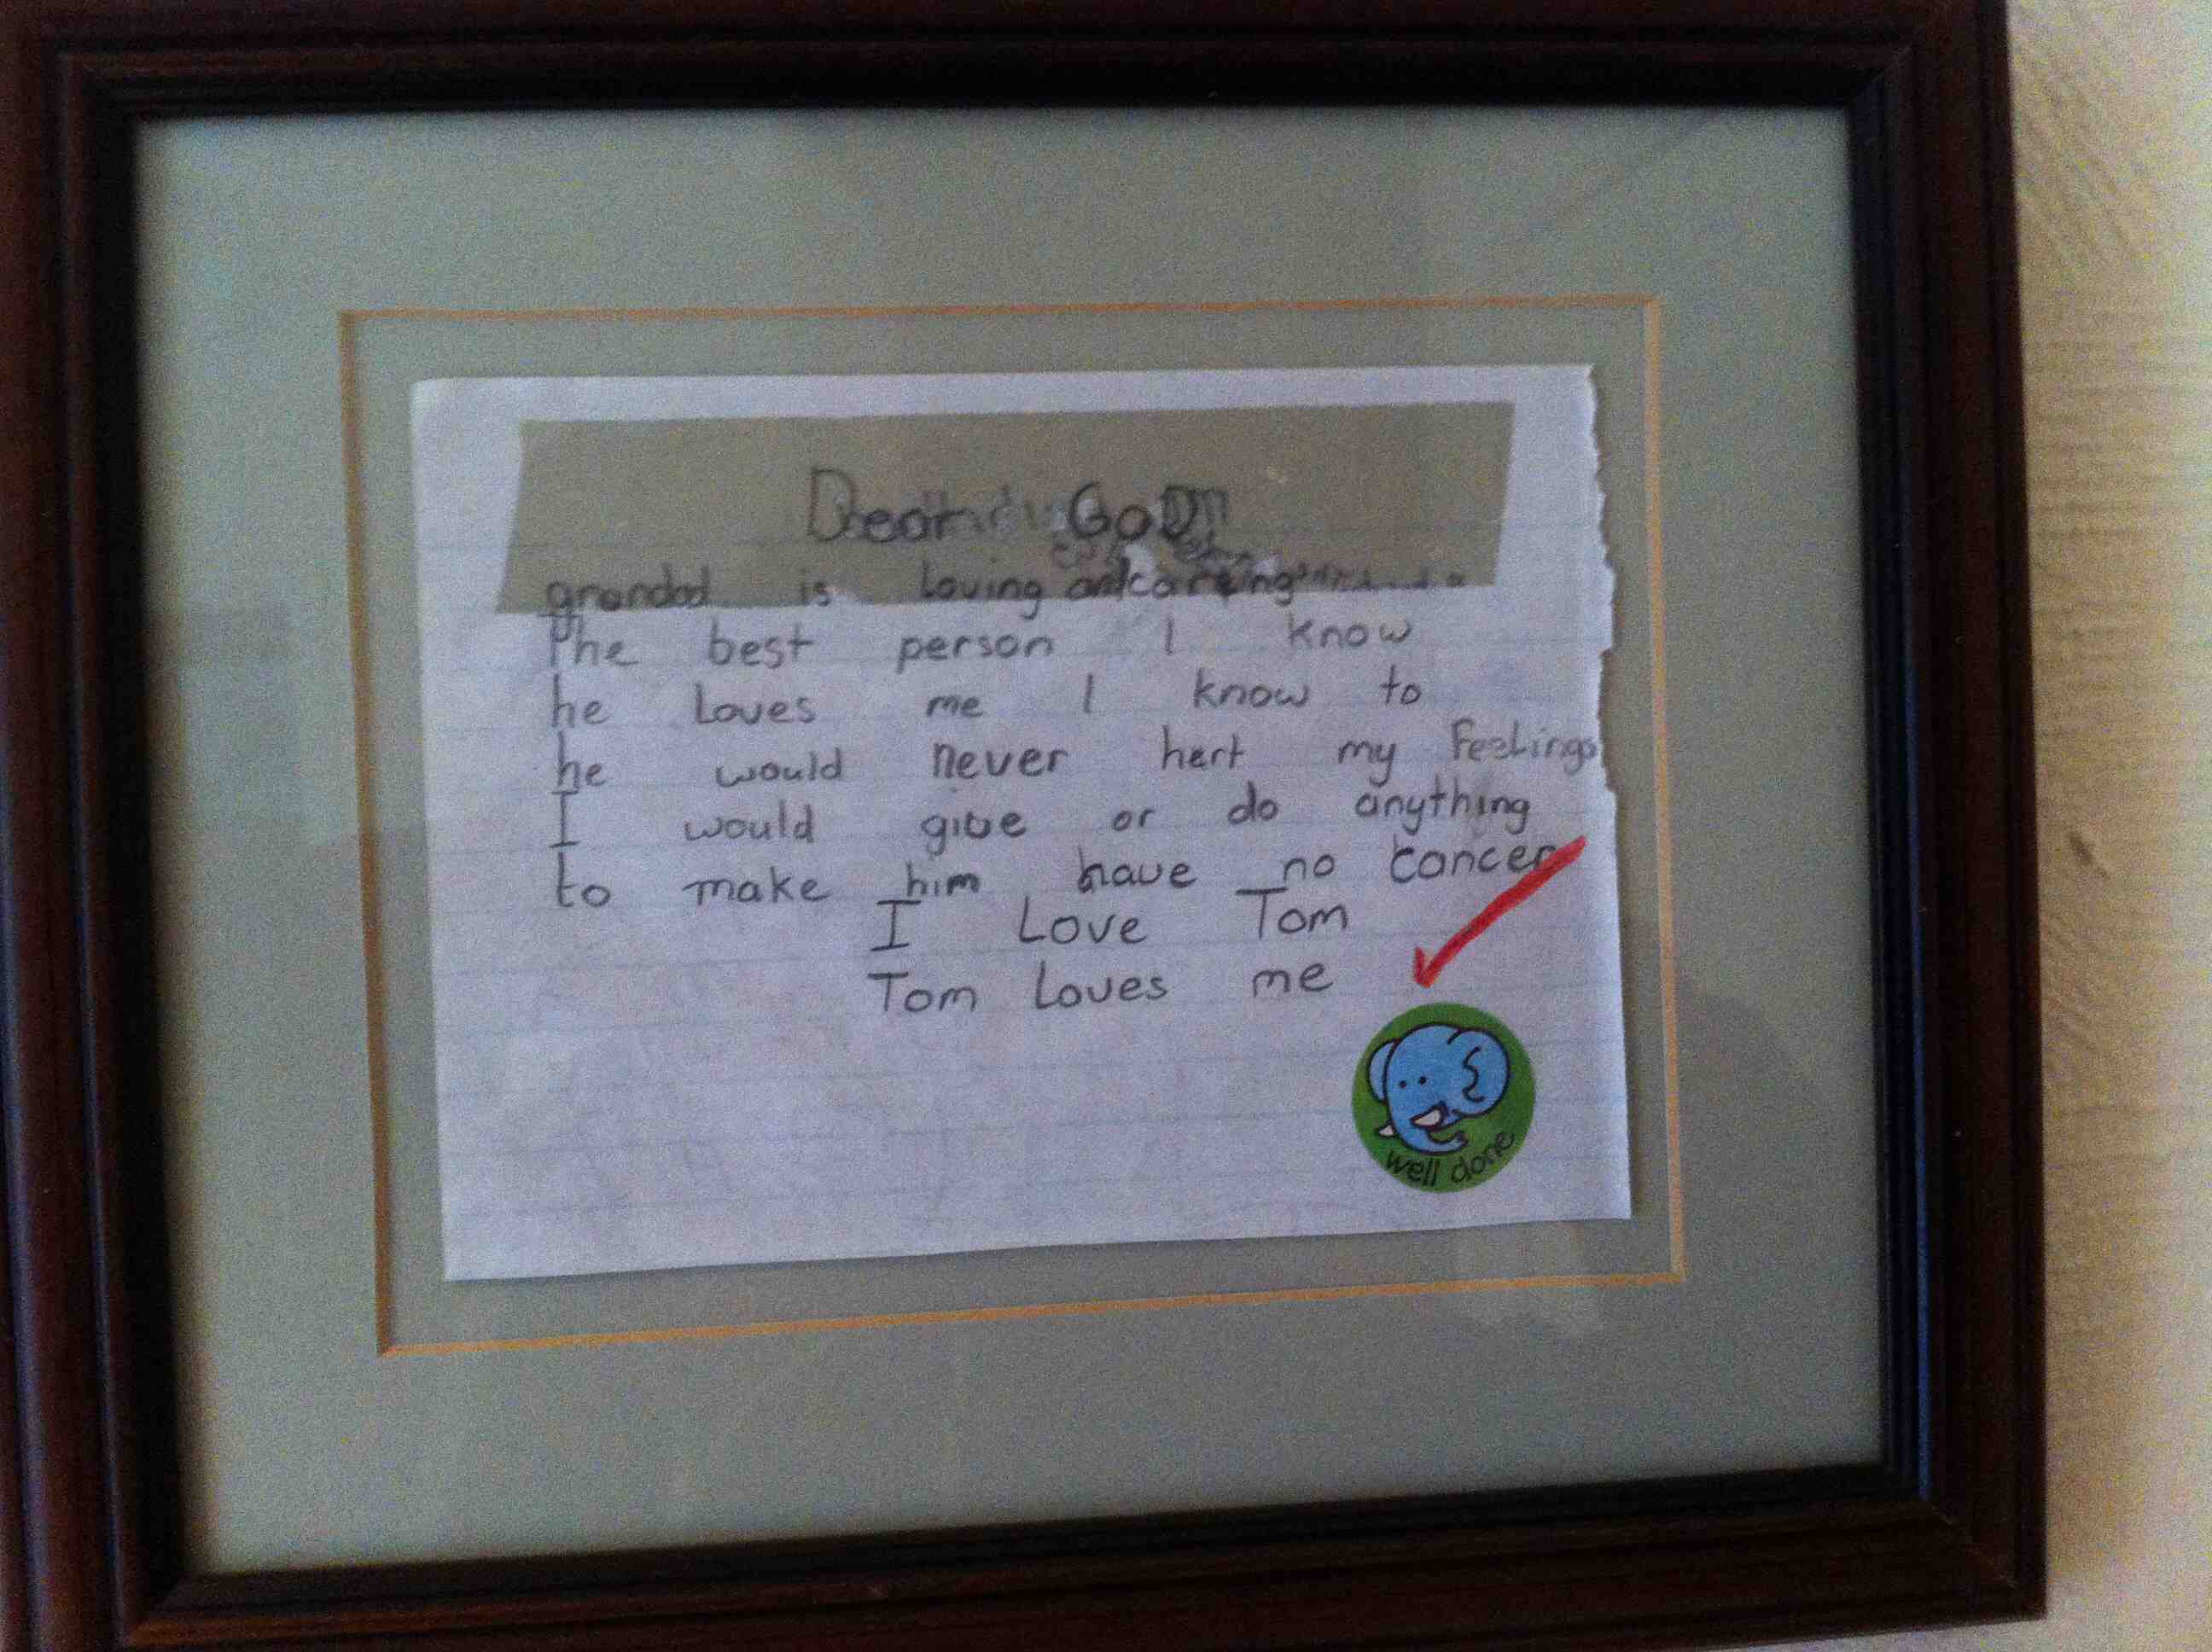 Dear GOD
grandad is loving and caring
The best person I know
he Loves me I know to
he would never hert my Feelings
I would give or do anything
to make him have no cancer
I Love Tom
Tom Loves me
well done